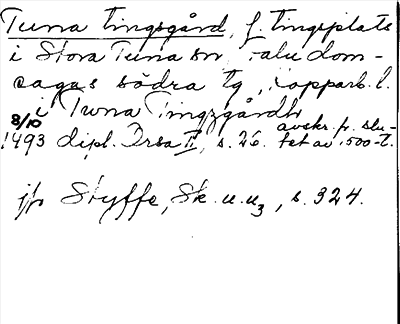 Tuna tingsgård, f. tingsplats
i Stora Tuna sn, Falu dom-
sagas södra tg, Kopparb. l.
i Twna Tingzgårdh
8/10 1493 dipl. Orsa II, s. 26. avskr. fr. slu-
tet av 1500-t.
jfr Styffe, Sk. u. u3, s. 324.